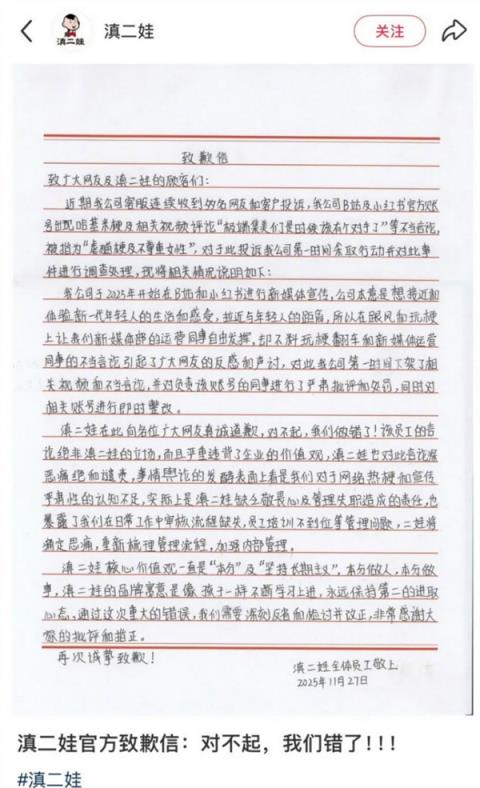 滇二娃
滇二娃
关注
致歉信
致广大网友及滇二娃的顾客们：
近期我公司客服连续收到多名网友和客户投诉，我公司B站及小红书官方账
号出现哈基米梗及相关视频评论“极端集美们是时候该有个对手了”等不当言论，
被指为“虐猫梗及不尊重女性”，对于此投诉我公司第一时间采取行动并对此事
件进行调查处理，现将相关情况说明如下：
我公司于2025年开始在B站和小红书进行新媒体宣传，公司本意是想接近和
体验新一代年轻人的生活和感受，拉近与年轻人的距离，所以在跟风和玩梗
上让我们新媒体部的运营同事自由发挥，却不料玩梗翻车和新媒体运营
同事的不当言论引起了广大网友的反感和声讨，对此我公司第一时间下架了相
关视频和不当言论，并对负责该账号的同事进行了严肃批评和处罚，同时对
相关账号进行即时整改。
滇二娃在此向各位广大网友真诚道歉，对不起，我们做错了！该员工的言
论绝非滇二娃的立场，而且严重违背了企业的价值观，滇二娃也对此言论深
恶痛绝和谴责，事情舆论的发酵表面上看是我们对于网络热梗和宣传
严肃性的认知不足，实际上是滇二娃缺乏敬畏心及管理失职造成的责任，也
暴露了我们在日常工作中审核流程缺失、员工培训不到位等管理问题，二娃将
痛定思痛，重新梳理管理流程，加强内部管理。
滇二娃核心价值观一直是“本分”及“坚持长期主义”，本分做人，本分做
事，滇二娃的品牌寓意是像孩子一样不断学习上进，永远保持第二的进取
心态，通过这次重大的错误，我们需要深刻反省和检讨并改正，非常感谢大
家的批评和指正。
再次诚挚致歉！
滇二娃全体员工敬上
2025年11月27日
滇二娃官方致歉信：对不起，我们错了！！！
#滇二娃